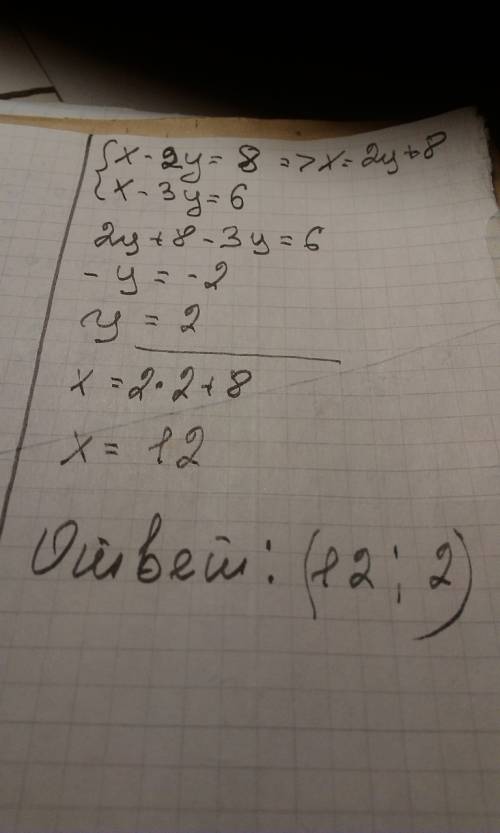 { x - 2y = 8 => x = 2y + 8
{ x - 3y = 6
2y + 8 - 3y = 6
- y = - 2
y = 2
x = 2 · 2 + 8
x = 12
Ответ: (12; 2)